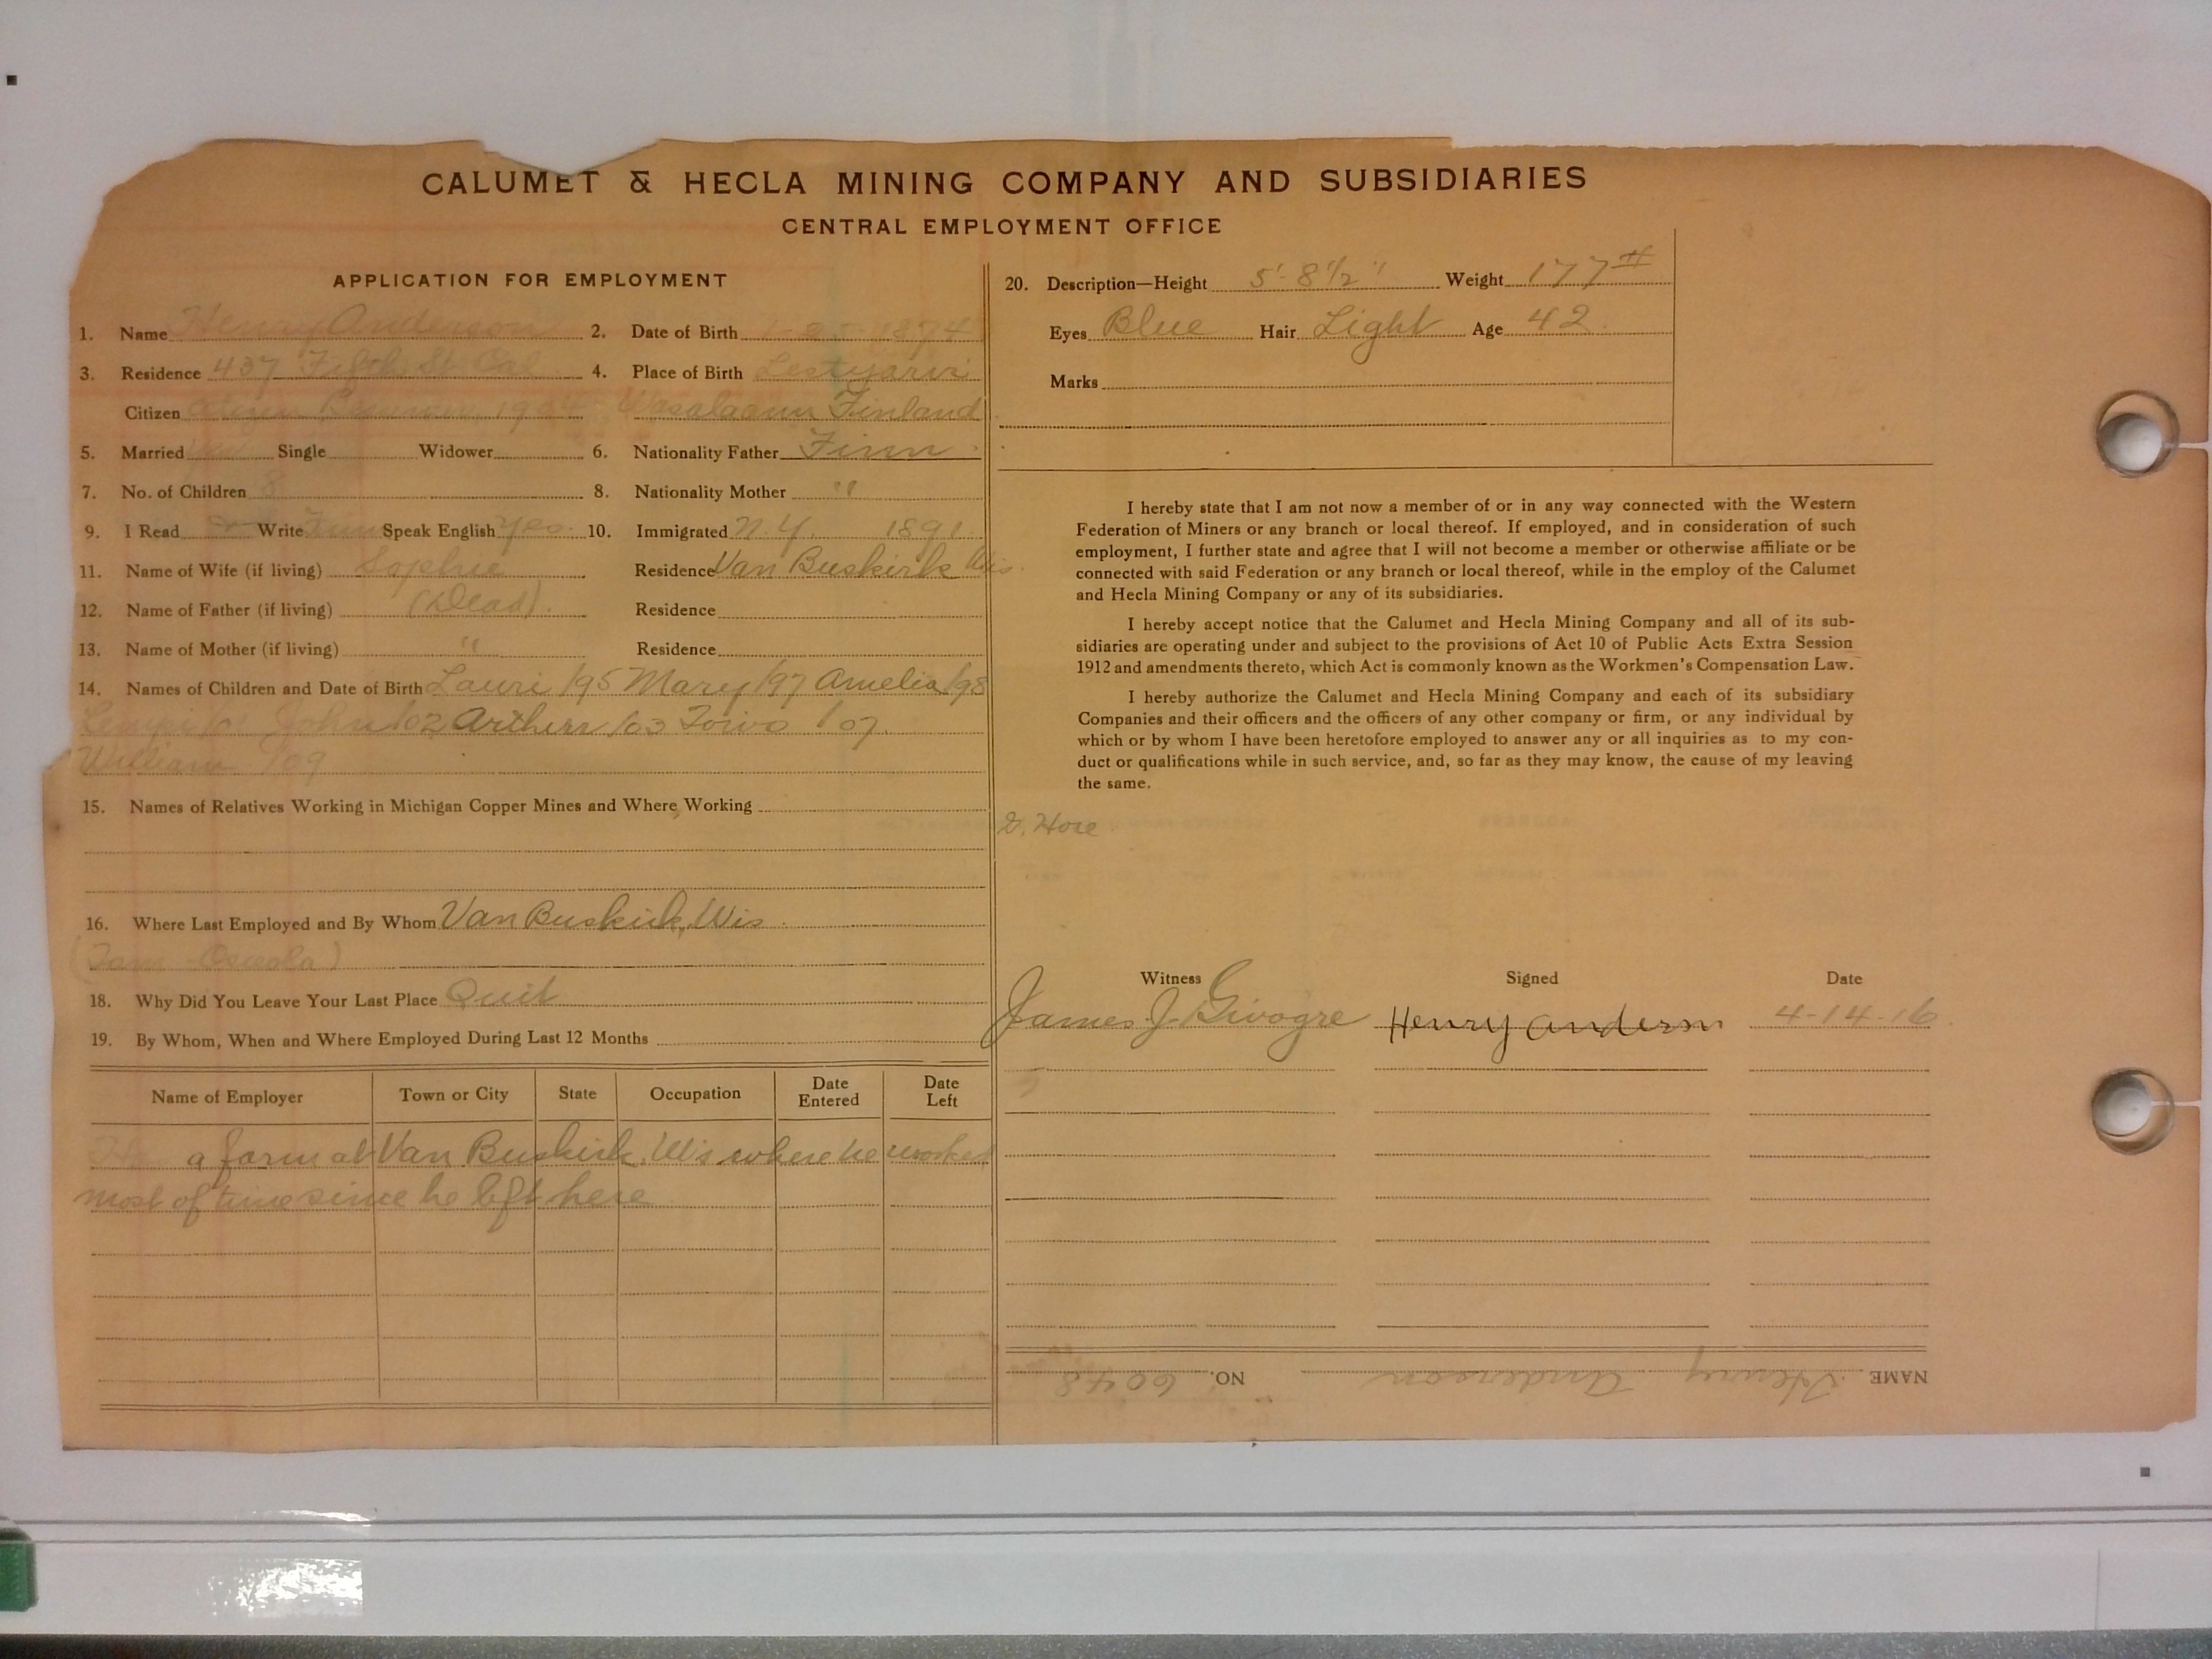 CALUMET & HECLA MINING COMPANY AND SUBSIDIARIES
CENTRAL EMPLOYMENT OFFICE
APPLICATION FOR EMPLOYMENT
1. Name Henry Anderson 2. Date of Birth 1874
3. Residence 437 Fifth St. Cal 4. Place of Birth
Citizen Finland
5. Married Single Widower 6. Nationality Father Finn
7. No. of Children 8 8. Nationality Mother "
9. I Read Write Finn Speak English Yes. 10. Immigrated N.Y. 1891.
11. Name of Wife (if living) Sophie Residence Van Buskirk Wis.
12. Name of Father (if living) (Dead). Residence
13. Name of Mother (if living) " Residence
14. Names of Children and Date of Birth Lauri /95 Mary /97 Amelia /98
Lempi /01 John /02 Arthur /03 Toivo /07.
William /09
15. Names of Relatives Working in Michigan Copper Mines and Where Working
16. Where Last Employed and By Whom Van Buskirk, Wis.
Osceola)
18. Why Did You Leave Your Last Place Quit
19. By Whom, When and Where Employed During Last 12 Months
Name of Employer Town or City State Occupation Date Entered Date Left
a farm at Van Buskirk, Wis where he worked
most of time since he left here
20. Description—Height 5'-8 1/2" Weight 177#
Eyes Blue Hair Light Age 42.
Marks
I hereby state that I am not now a member of or in any way connected with the Western
Federation of Miners or any branch or local thereof. If employed, and in consideration of such
employment, I further state and agree that I will not become a member or otherwise affiliate or be
connected with said Federation or any branch or local thereof, while in the employ of the Calumet
and Hecla Mining Company or any of its subsidiaries.
I hereby accept notice that the Calumet and Hecla Mining Company and all of its sub-
sidiaries are operating under and subject to the provisions of Act 10 of Public Acts Extra Session
1912 and amendments thereto, which Act is commonly known as the Workmen's Compensation Law.
I hereby authorize the Calumet and Hecla Mining Company and each of its subsidiary
Companies and their officers and the officers of any other company or firm, or any individual by
which or by whom I have been heretofore employed to answer any or all inquiries as to my con-
duct or qualifications while in such service, and, so far as they may know, the cause of my leaving
the same.
Witness Signed Date
James J. Henry Anderson 4-14-16
NAME Henry Anderson NO. 6048